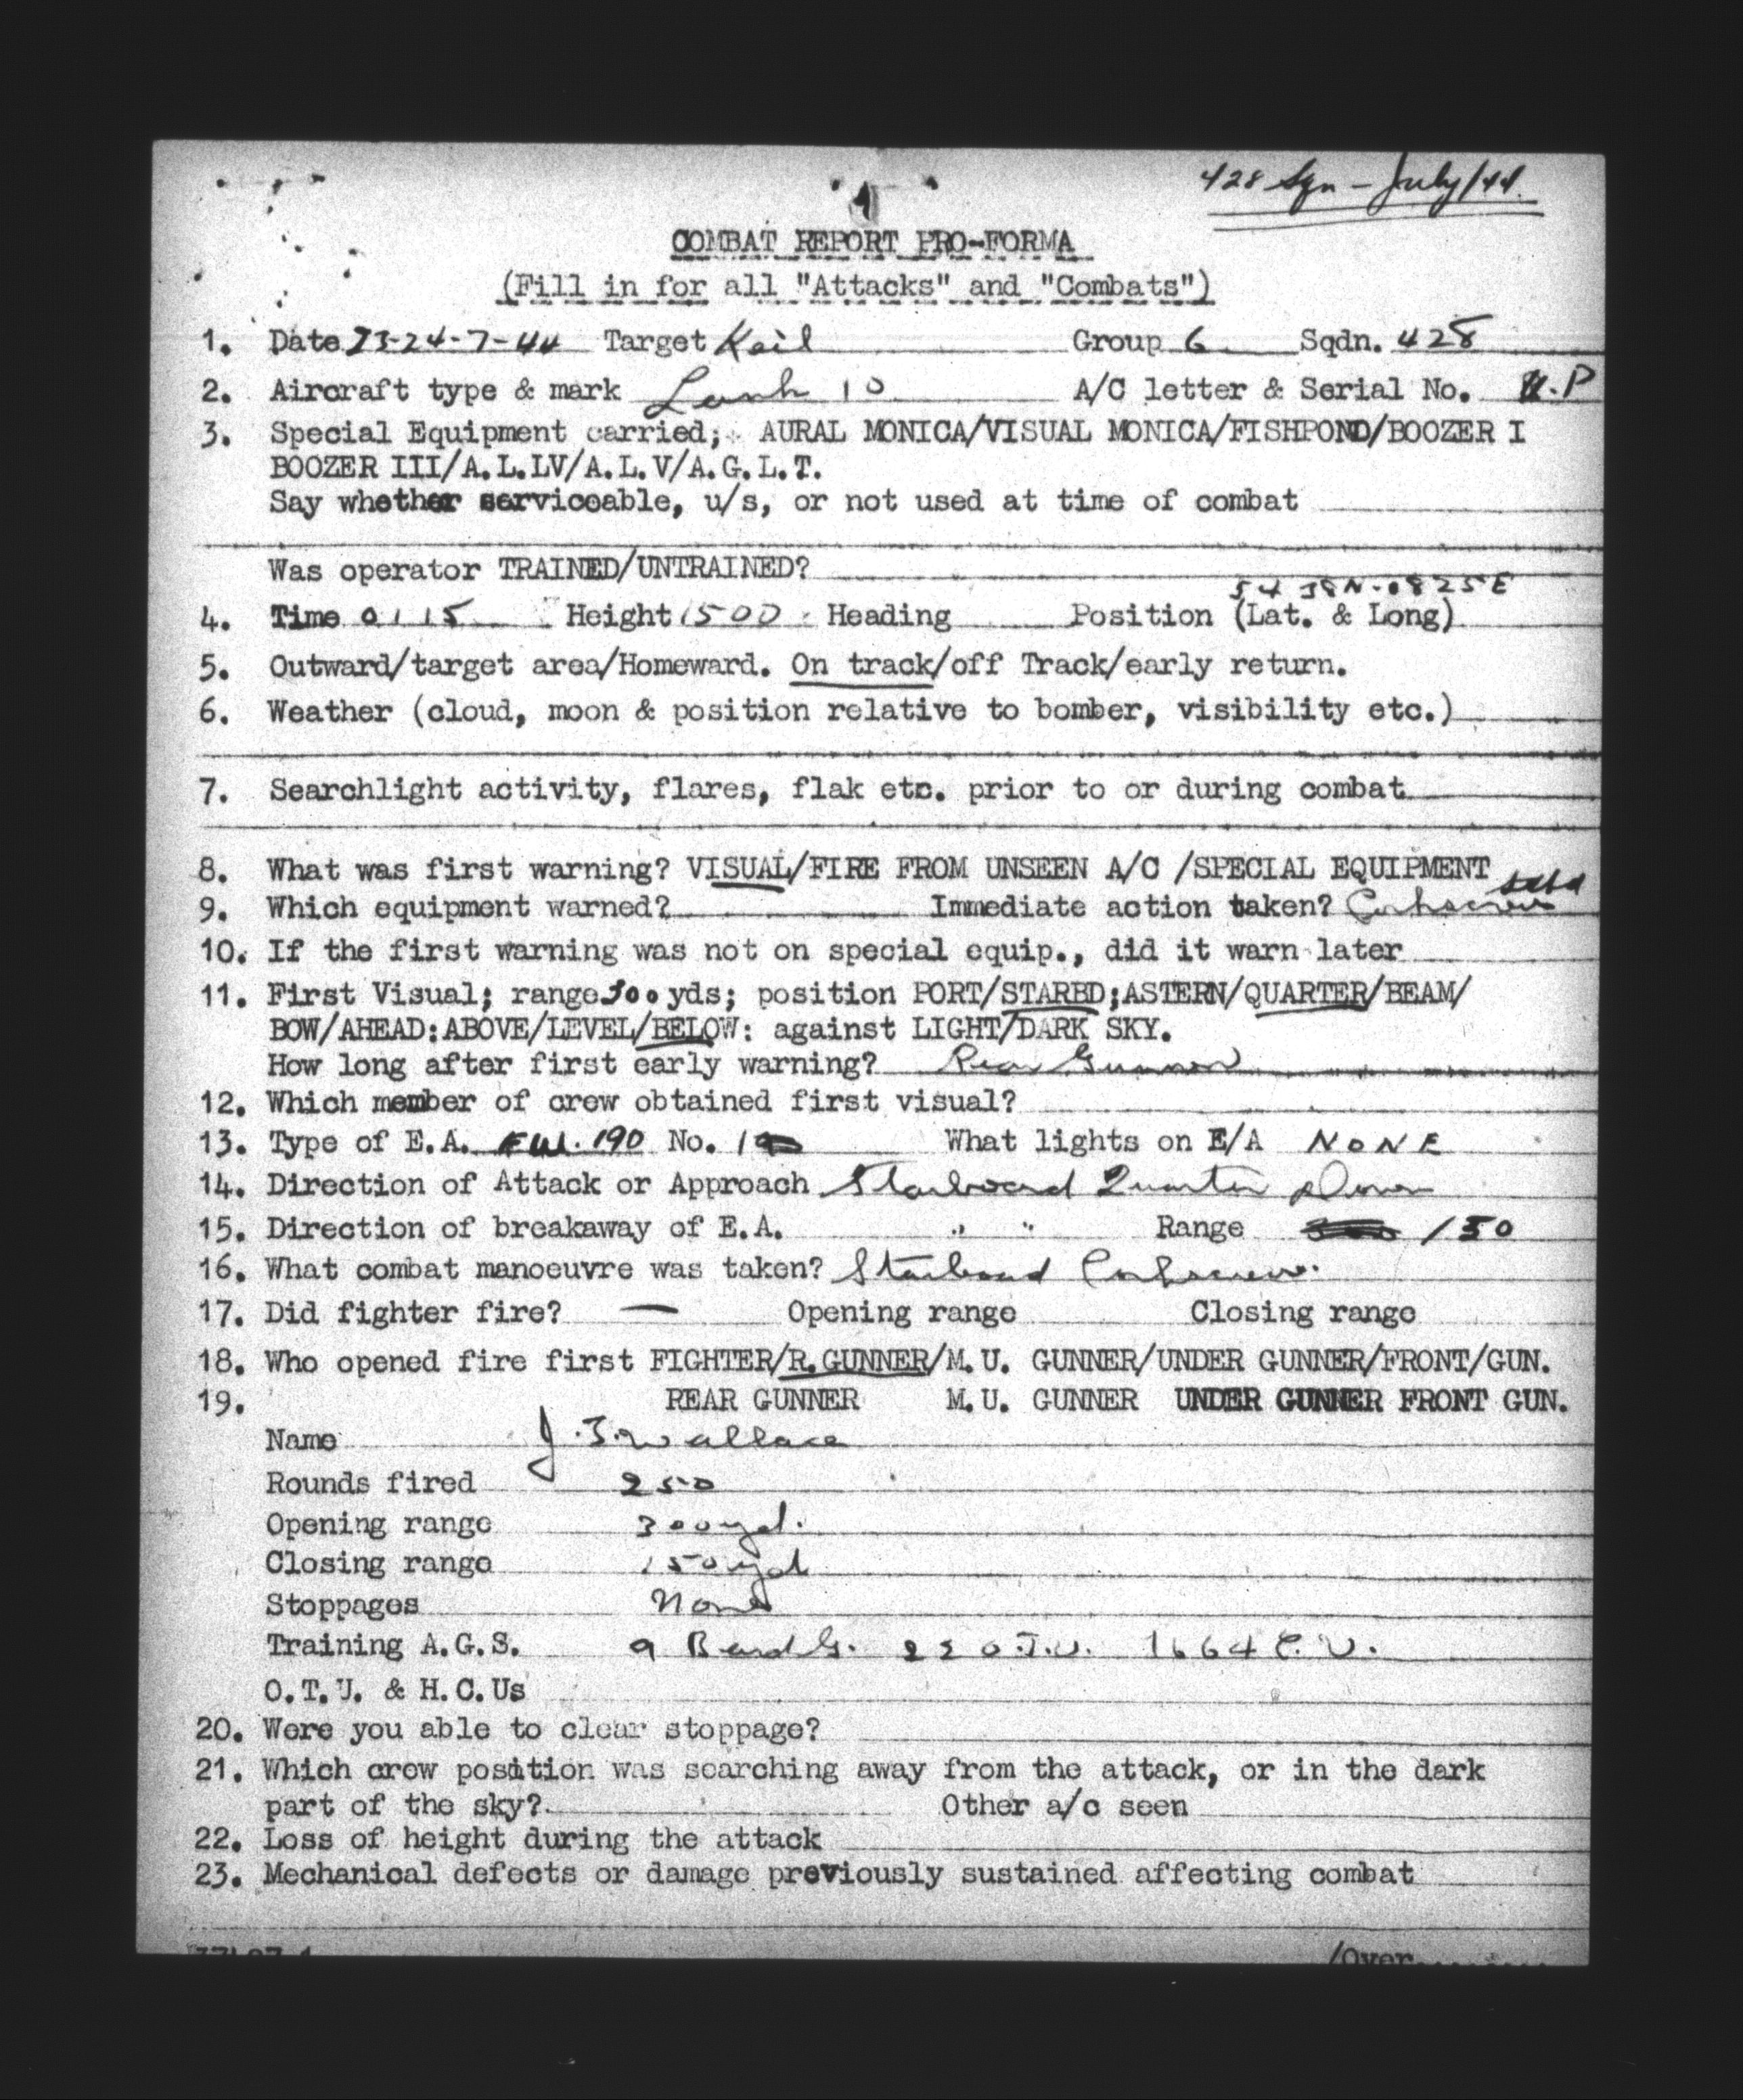 428 Sqn - July/44.
1
COMBAT REPORT PRO-FORMA
(Fill in for all "Attacks" and "Combats")
1. Date 23-24-7-44 Target Keil Group 6 Sqdn. 428
2. Aircraft type & mark Lanc 10 A/C letter & Serial No. .P
3. Special Equipment carried; AURAL MONICA/VISUAL MONICA/FISHPOND/BOOZER I
BOOZER III/A.L.LV/A.L.V/A.G.L.T.
Say whether serviceable, u/s, or not used at time of combat
Was operator TRAINED/UNTRAINED?
54 38N-0825E
4. Time 0115 Height 1500 Heading Position (Lat. & Long)
5. Outward/target area/Homeward. On track/off Track/early return.
6. Weather (cloud, moon & position relative to bomber, visibility etc.)
7. Searchlight activity, flares, flak etc. prior to or during combat
8. What was first warning? VISUAL/FIRE FROM UNSEEN A/C /SPECIAL EQUIPMENT
9. Which equipment warned? Immediate action taken? Corkscrew stbd
10. If the first warning was not on special equip., did it warn later
11. First Visual; range 300 yds; position PORT/STARBD;ASTERN/QUARTER/BEAM/
BOW/AHEAD:ABOVE/LEVEL/BELOW: against LIGHT/DARK SKY.
How long after first early warning? Rear Gunner
12. Which member of crew obtained first visual?
13. Type of E.A. FW.190 No. 1 What lights on E/A NONE
14. Direction of Attack or Approach Starboard Quarter Down
15. Direction of breakaway of E.A. " " Range 150
16. What combat manoeuvre was taken? Starboard Corkscrew.
17. Did fighter fire? — Opening range Closing range
18. Who opened fire first FIGHTER/R.GUNNER/M.U. GUNNER/UNDER GUNNER/FRONT/GUN.
19. REAR GUNNER M.U. GUNNER UNDER GUNNER FRONT GUN.
Name J.J.Wallace
Rounds fired 250
Opening range 300yd.
Closing range 150yd
Stoppages None
Training A.G.S. 9 BandG. 22 O.T.U. 1664 C.U.
O.T.U. & H.C.Us
20. Were you able to clear stoppage?
21. Which crew position was searching away from the attack, or in the dark
part of the sky? Other a/c seen
22. Loss of height during the attack
23. Mechanical defects or damage previously sustained affecting combat
/Over